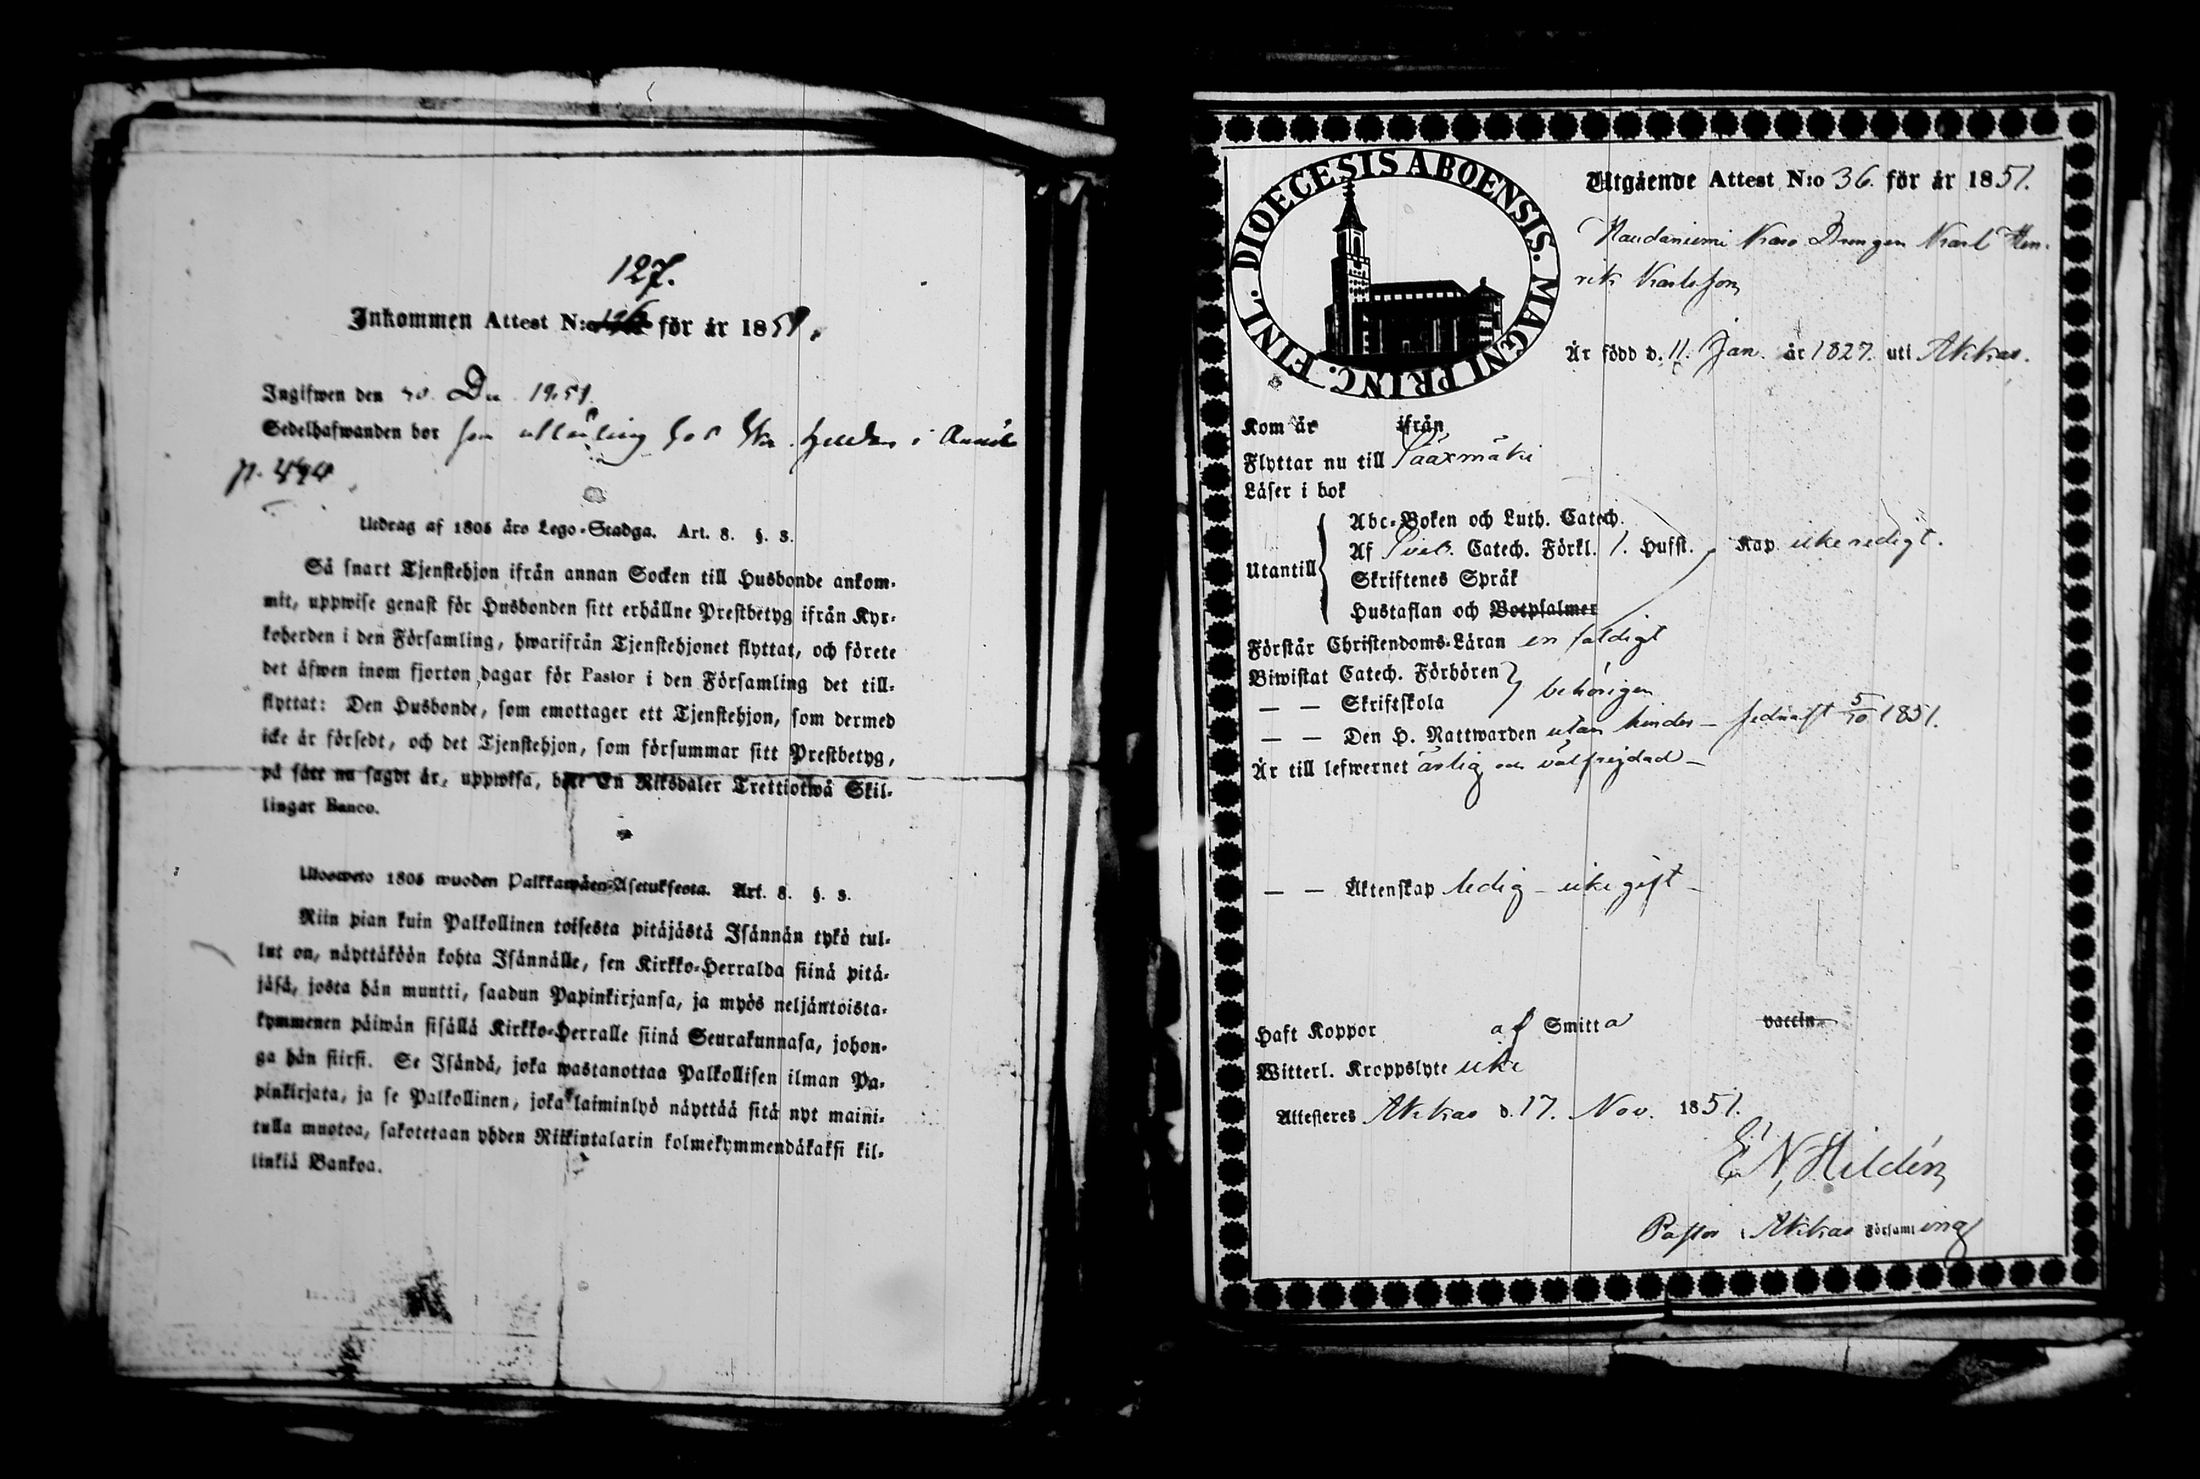 127.
Inkommen Attest N:o för år 1851.
Ingifwen den Dec 1851
Sedelhafwanden bor som i
p. 494
Utdrag af 1805 års Lego-Stadga. Art. 8. §. 3.
Så snart Tjenstehjon ifrån annan Socken till Husbonde ankom-
mit, uppwise genast för Husbonden sitt erhållne Prestbetyg ifrån Kyr-
koherden i den Församling, hwarifrån Tjenstehjonet flyttat, och förete
det äfwen inom fjorton dagar för Pastor i den Församling det till-
flyttat: Den Husbonde, som emottager ett Tjenstehjon, som dermed
icke är försedt, och det Tjenstehjon, som försummar sitt Prestbetyg,
på sätt nu sagdt är, uppwisa, böte En Riksdaler Trettiotwå Skil-
lingar Banco.
Ulosweto 1805 wuoden Palkkawäen-Asetuksesta. Art. 8. §. 3.
Niin pian kuin Palkollinen toisesta pitäjästä Isännän tykö tul-
lut on, näyttäköön kohta Isännälle, sen Kirkko-Herralda siinä pitä-
jäsä, josta hän muutti, saadun Papinkirjansa, ja myös neljäntoista-
kymmenen päiwän sisällä Kirkko-Herralle siinä Seurakunnasa, johon-
ga hän siirsi. Se Isändä, joka wastanottaa Palkollisen ilman Pa-
pinkirjata, ja se Palkollinen, joka laiminlyö näyttää sitä nyt maini-
tulla muotoa, sakotetaan yhden Riikintalarin kolmekymmendäkaksi kil-
linkiä Bankoa.
DIOECESIS ABOENSIS. MAGNI PRINC. FINL.
Utgående Attest N:o 36. för år 1851.
Haudaniemi Karo Drengen Karl Hen-
rik Karlsson
Är född d. 11. Jan. år 1827. uti Akkas.
Kom år ifrån
Flyttar nu till Sääxmäki
Läser i bok
Utantill
Abc-Boken och Luth. Catech.
Af Sveb. Catech. Förkl. 1. Hufst. Kap. icke redigt.
Skriftenes Språk
Hustaflan och Botpsalmer
Förstår Christendoms-Läran enfaldigt
Biwistat Catech. Förhören
— — Skriftskola behörigen
— — Den H. Nattwarden utan hinder – sednast 5/10 1851.
Är till lefwernet ärlig och välfrejdad –
— — Äktenskap ledig – icke gift –
Haft Koppor af Smitta vaccin.
Witterl. Kroppslyte icke
Attesteres Akkas d. 17. Nov. 1851.
E N Hildén
Pastor i Akkas Församling